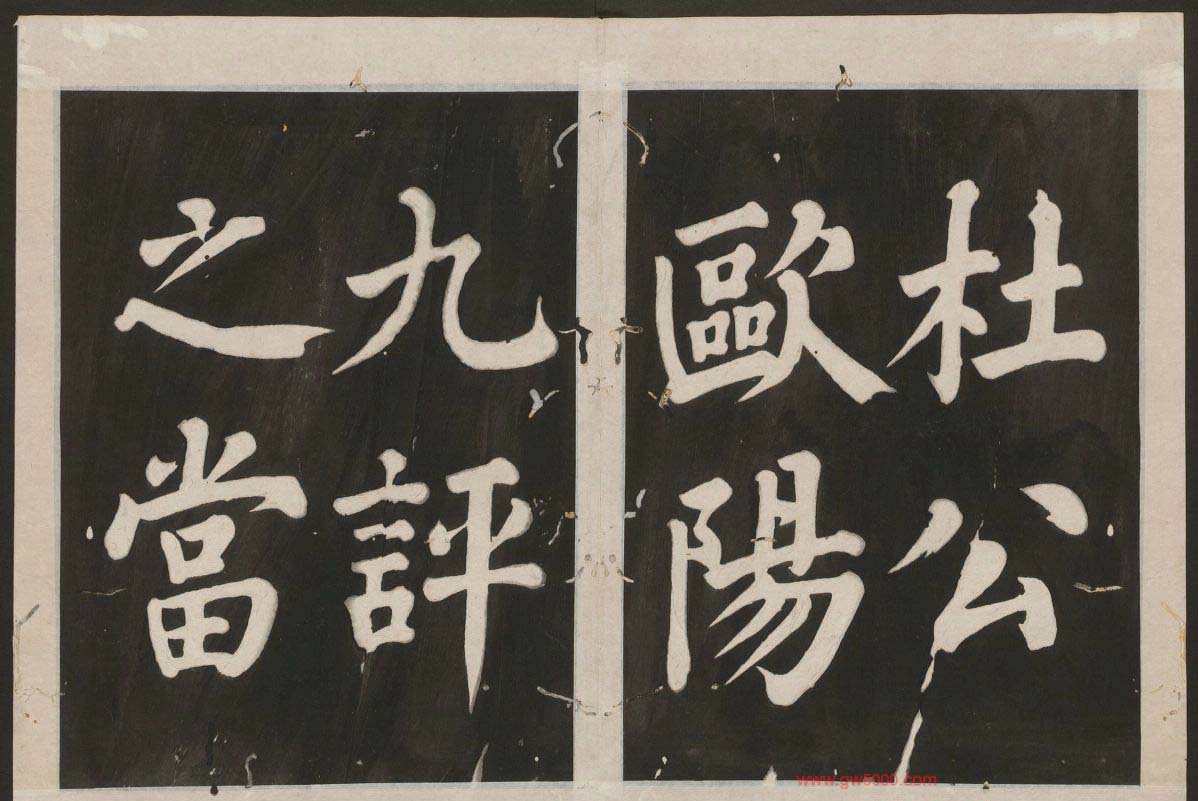 杜公
歐陽
九評
之當
www.gw5000.com